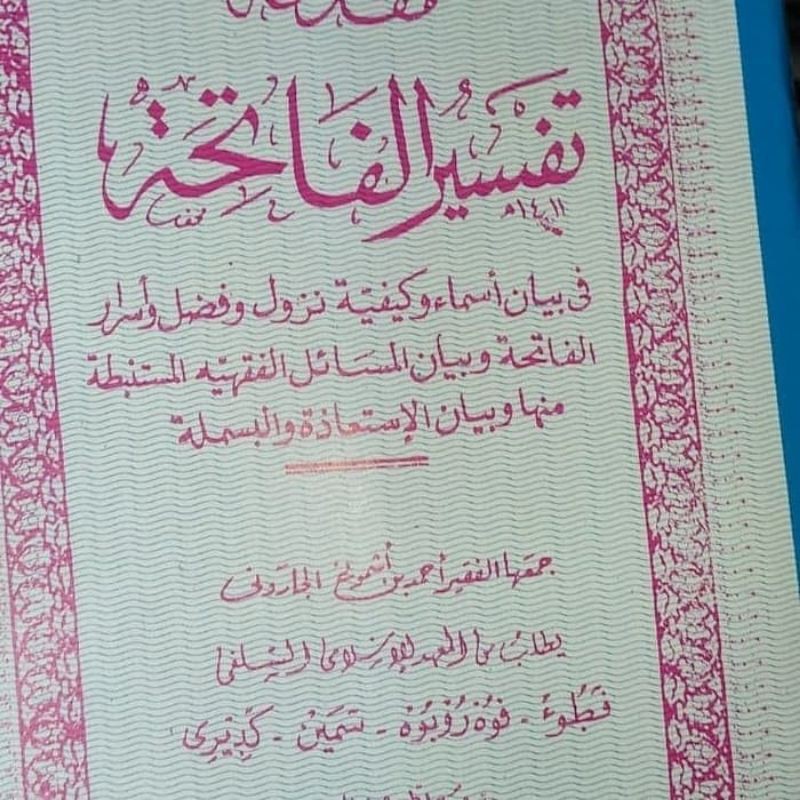 مقدمة
تفسير الفاتحة
١٤١١هـ
فى بيان أسماء وكيفيّة نزول وفضل وأسرار
الفاتحة وبيان المسَائل الفقهيّه المستنبطة
منها وبيان الإستعاذة والبسملة
جمعها الفقير أحمد بن أشموني الجاروني
يطلب من المعهد الإسلامى السلفى
فَطُوءْ - فوهْ رُوْبُوهْ - تتمَيْنْ - كَدِيْرِى